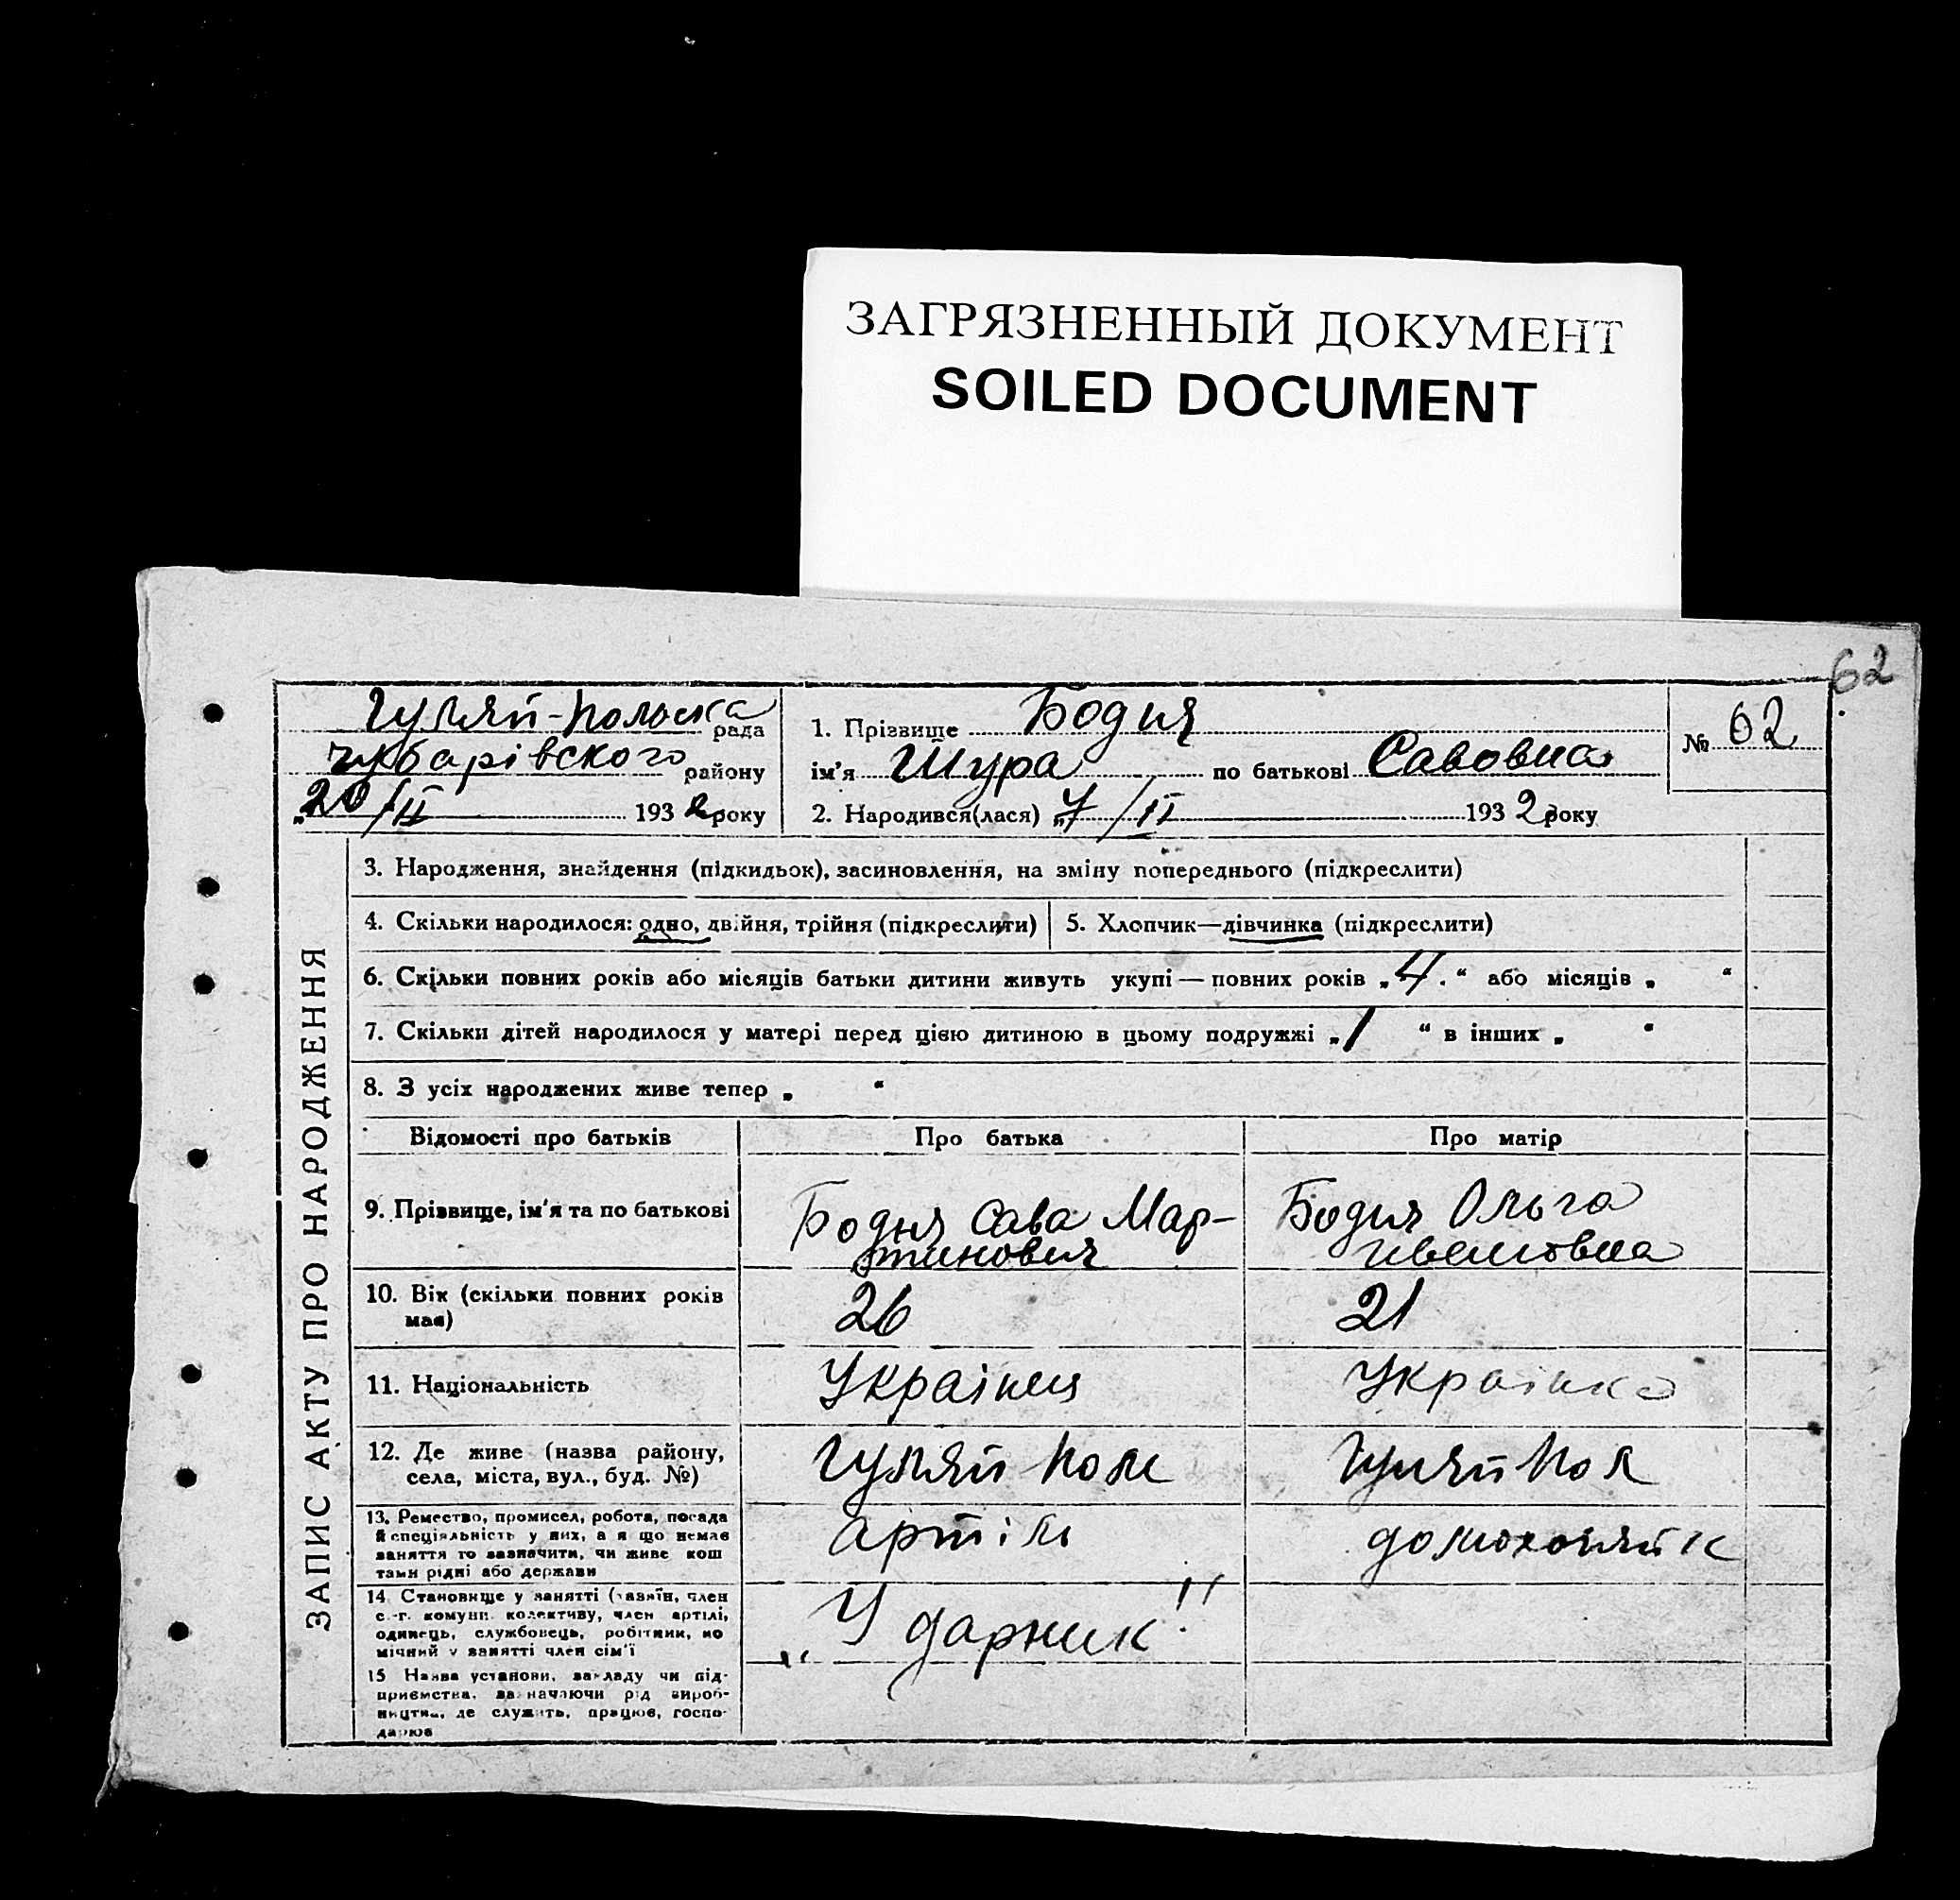 ЗАГРЯЗНЕННЫЙ ДОКУМЕНТ
SOILED DOCUMENT
62
Гуляй-Польська рада
Чубарівского району
"20/II 1932 року
1. Прізвище Бодня
ім'я Шура по батькові Савовна
2. Народився(лася) "7/II 1932 року
№ 62
ЗАПИС АКТУ ПРО НАРОДЖЕННЯ
3. Народження, знайдення (підкидьок), засиновлення, на зміну попереднього (підкреслити)
4. Скільки народилося: одно, двійня, трійня (підкреслити)
5. Хлопчик—дівчинка (підкреслити)
6. Скільки повних років або місяців батьки дитини живуть укупі — повних років „4." або місяців „ "
7. Скільки дітей народилося у матері перед цією дитиною в цьому подружжі „1 " в інших „ "
8. З усіх народжених живе тепер „ "
Відомості про батьків Про батька Про матір
9. Прізвище, ім'я та по батькові
Бодня Сава Мар-
тинович
Бодня Ольга
Ивановна
10. Вік (скільки повних років
має)
26
21
11. Національність
Українец
Українка
12. Де живе (назва району,
села, міста, вул., буд. №)
Гуляй Поле
Гуляй Пол
13. Ремество, промисел, робота, посада
й спеціяльність у них, а я що немає
заняття то зазначити, чи живе кош
тами рідні або держави
артіль
домохозяйк
14. Становище у занятті (хазяїн, член
с.-г. комуни колективу, член артілі,
одинець, службовець, робітник, по
мічний у занятті член сім'ї
„Ударник!"
15 Назва установи, закладу чи під-
приємства, зазначаючи рід вироб-
ництва, де служить, працює, госпо-
дарює